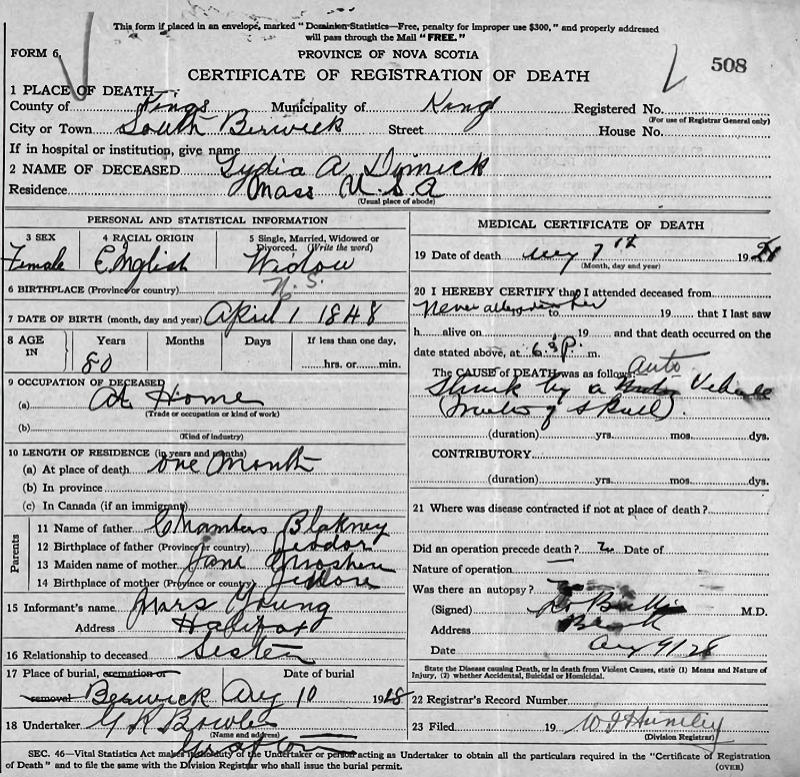 This form if placed in an envelope, marked "Dominion Statistics—Free, penalty for improper use $300," and properly addressed
will pass through the Mail "FREE."
FORM 6.
PROVINCE OF NOVA SCOTIA
508
CERTIFICATE OF REGISTRATION OF DEATH
1 PLACE OF DEATH
County of Kings Municipality of King Registered No.
(For use of Registrar General only)
City or Town South Berwick Street House No.
If in hospital or institution, give name
2 NAME OF DECEASED Lydia A. Dimick
Residence Mass U.S.A
(Usual place of abode)
PERSONAL AND STATISTICAL INFORMATION
3 SEX 4 RACIAL ORIGIN 5 Single, Married, Widowed or
Divorced. (Write the word)
Female English Widow
6 BIRTHPLACE (Province or country) N.S.
7 DATE OF BIRTH (month, day and year) April 1 1848
8 AGE IN Years Months Days If less than one day,
80 hrs. or min.
9 OCCUPATION OF DECEASED
(a) At Home
(Trade or occupation or kind of work)
(b)
(Kind of industry)
10 LENGTH OF RESIDENCE (in years and months)
(a) At place of death one month
(b) In province
(c) In Canada (if an immigrant)
Parents
11 Name of father Chambers Blakney
12 Birthplace of father (Province or country) Jeddor
13 Maiden name of mother Jane
14 Birthplace of mother (Province or country) Jeddore
15 Informant's name Mars Young
Address Halifax
16 Relationship to deceased Sister
17 Place of burial, cremation or Date of burial
removal Berwick Aug 10 1928
18 Undertaker G R Bowle
(Name and address)
Grafton
MEDICAL CERTIFICATE OF DEATH
19 Date of death Aug 7th 1928
(Month, day and year)
20 I HEREBY CERTIFY that I attended deceased from
Never attended her to 19 that I last saw
h alive on , 19 and that death occurred on the
date stated above, at 6.30 P. m.
The CAUSE OF DEATH was as follows: Auto
Struck by a Vehicle
(Fracture of skull).
(duration) yrs. mos. dys.
CONTRIBUTORY
(duration) yrs. mos. dys.
21 Where was disease contracted if not at place of death?
Did an operation precede death? no Date of
Nature of operation
Was there an autopsy? no
(Signed) M.D.
Address
Date Aug 9/28
State the Disease causing Death, or in death from Violent Causes, state (1) Means and Nature of
Injury, (2) whether Accidental, Suicidal or Homicidal.
22 Registrar's Record Number
23 Filed 19 W J Huntley
(Division Registrar)
SEC. 46—Vital Statistics Act makes it the duty of the Undertaker or person acting as Undertaker to obtain all the particulars required in the "Certificate of Registration
of Death" and to file the same with the Division Registrar who shall issue the burial permit.
(OVER)